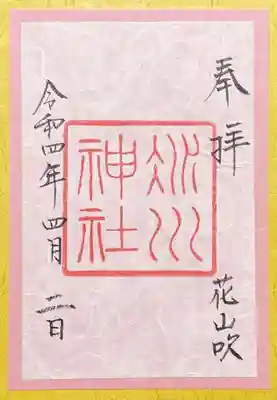 奉拝
花山吹
氷川
神社
令和四年 四月 日